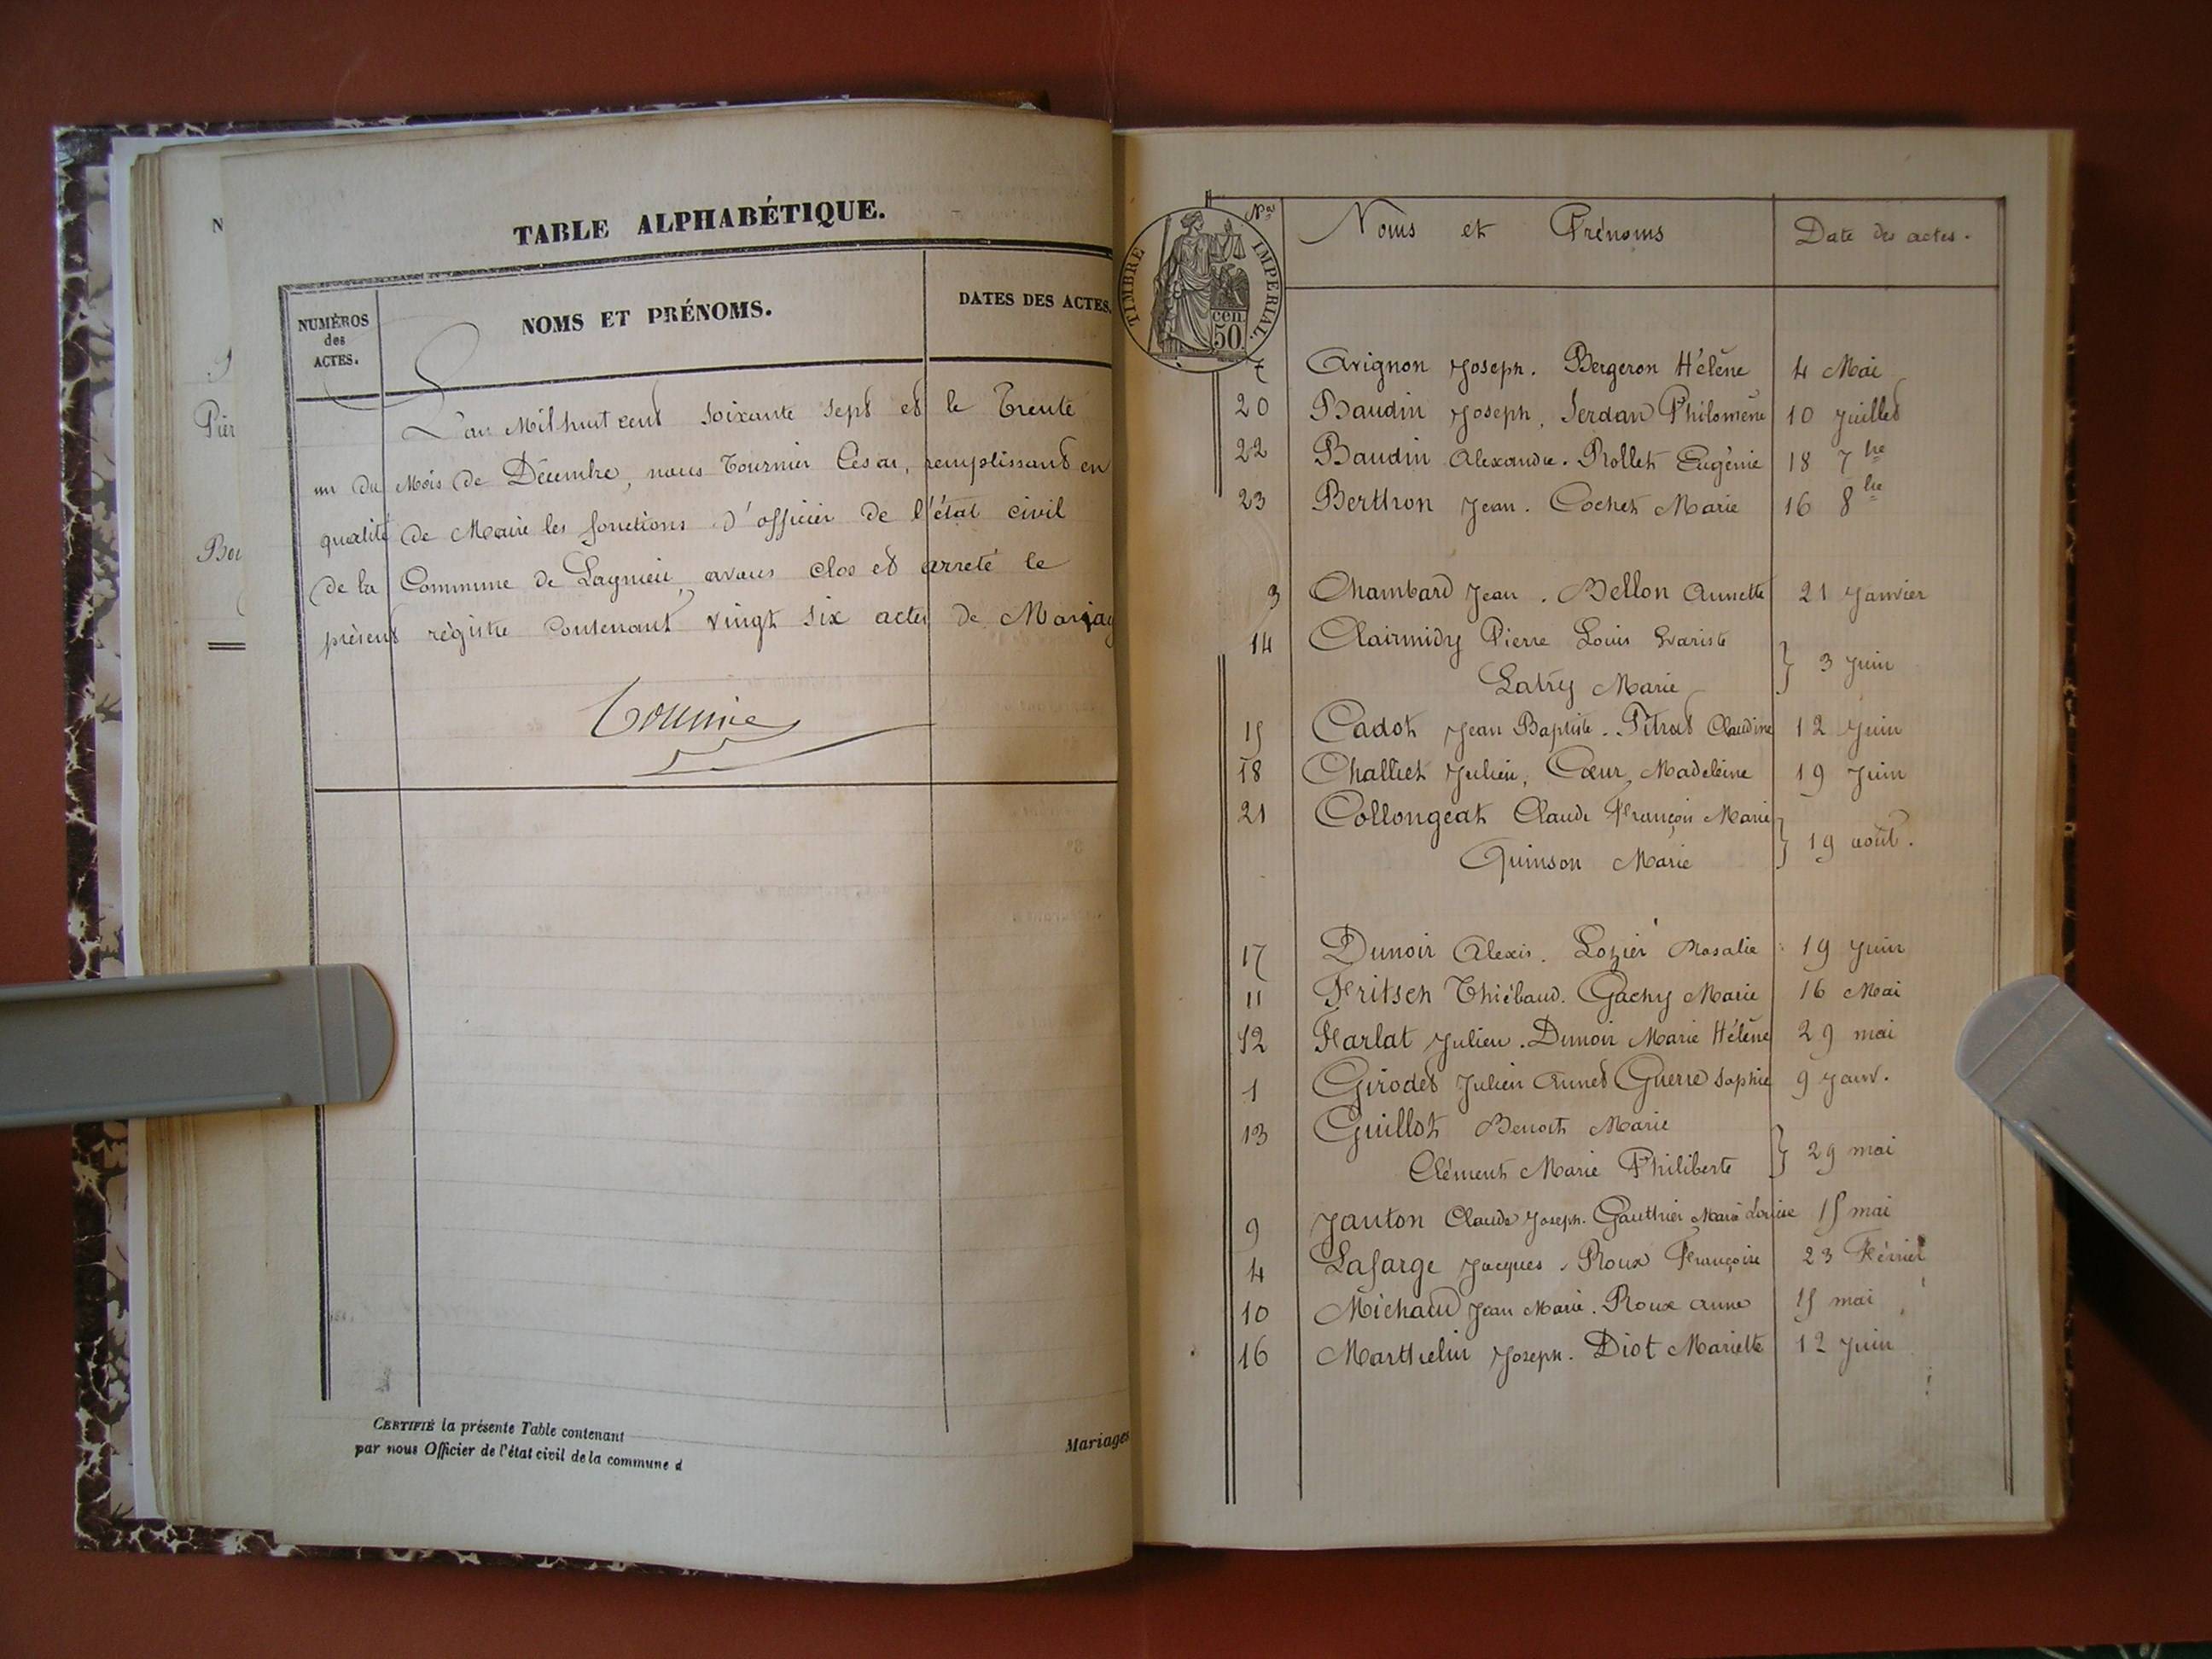 N
Pier
Bou
TABLE ALPHABÉTIQUE.
NUMÉROS des ACTES.
NOMS ET PRÉNOMS.
DATES DES ACTES.
L'an Mil huit cent soixante sept et le Trente
un du Mois de Décembre, nous Tournier César, remplissant en
qualité de Maire les fonctions d'officier de l'état civil
de la Commune de Lagnieu, avons clos et arreté le
présent régistre contenant vingt six actes de Mariag
Tournier
CERTIFIÉ la présente Table contenant
Mariages
par nous Officier de l'état civil de la commune d
TIMBRE IMPERIAL.
50 cen.
Nos Noms et Prénoms Date des actes.
7 Avignon Joseph. Bergeron Hélène 4 Mai
20 Baudin Joseph, Serdan Philomène 10 Juillet
22 Baudin Alexandre. Rollet Eugénie 18 7bre
23 Berthron Jean. Cochet Marie 16 8bre
3 Chambard Jean. Bellon Annette 21 Janvier
14 Clairmidy Pierre Louis Evariste
Latry Marie } 3 Juin
15 Cadot Jean Baptiste. Pitrat Claudine 12 Juin
18 Challiet Julien, Cœur Madeleine 19 Juin
21 Collongeat Claude François Marie
Quinson Marie } 19 août.
17 Dunoir Alexis. Lozier Rosalie 19 Juin
11 Fritsch Thiébaud. Gachy Marie 16 Mai
12 Farlat Julien. Dunoir Marie Hélène 29 mai
1 Girodet Julien Annet Guerre Sophie 9 Janv.
13 Guillot Benoit Marie
Clément Marie Philiberte } 29 mai
9 Janton Claude Joseph. Gauthier Marie Louise 15 mai
4 Lafarge Jacques. Roux Françoise 23 Février
10 Michaud Jean Marie. Roux Anne 15 mai
16 Marthelin Joseph. Diot Mariette 12 Juin